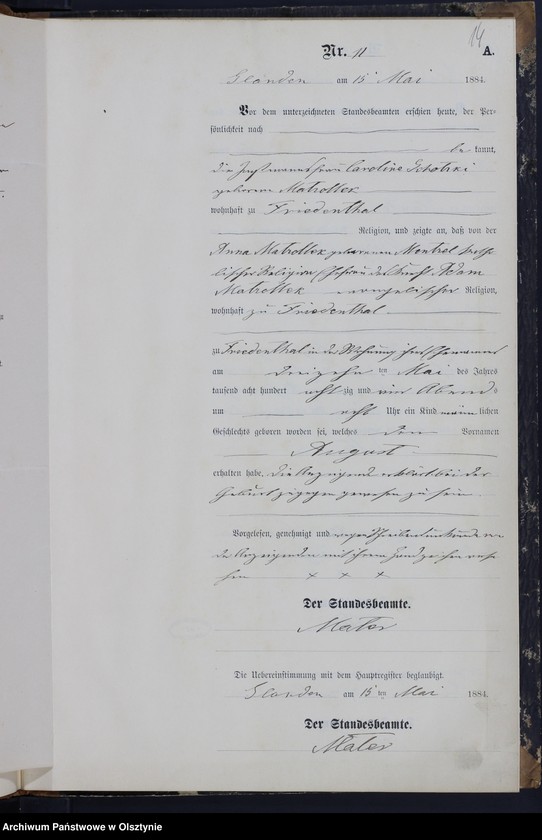 14
Nr. 11 A.
Glanden am 15 Mai 1884.
Vor dem unterzeichneten Standesbeamten erschien heute, der Per-
sönlichkeit nach
be kannt,
die Instmannsfrau Caroline
geborene Matrollek
wohnhaft zu Friedenthal
Religion, und zeigte an, daß von der
Anna Matrollek geborenen katho-
lischer Religion, Ehefrau des Knecht Adam
Matrollek evangelischer Religion,
wohnhaft zu Friedenthal
zu Friedenthal in der Wohnung ihres Ehemannes
am dreizehn ten Mai des Jahres
tausend acht hundert acht zig und vier Abends
um acht Uhr ein Kind männ lichen
Geschlechts geboren worden sei, welches den Vornamen
August
erhalten habe. Die Anzeigende erklärt bei der
Geburt zugegen gewesen zu sein.
Vorgelesen, genehmigt und wegen Schreibensunkunde von
der Anzeigenden mit ihrem Handzeichen verse
hen + + +
Der Standesbeamte.
Mater
Die Uebereinstimmung mit dem Hauptregister beglaubigt.
Glanden am 15 ten Mai 1884.
Der Standesbeamte.
Mater
Archiwum Państwowe w Olsztynie